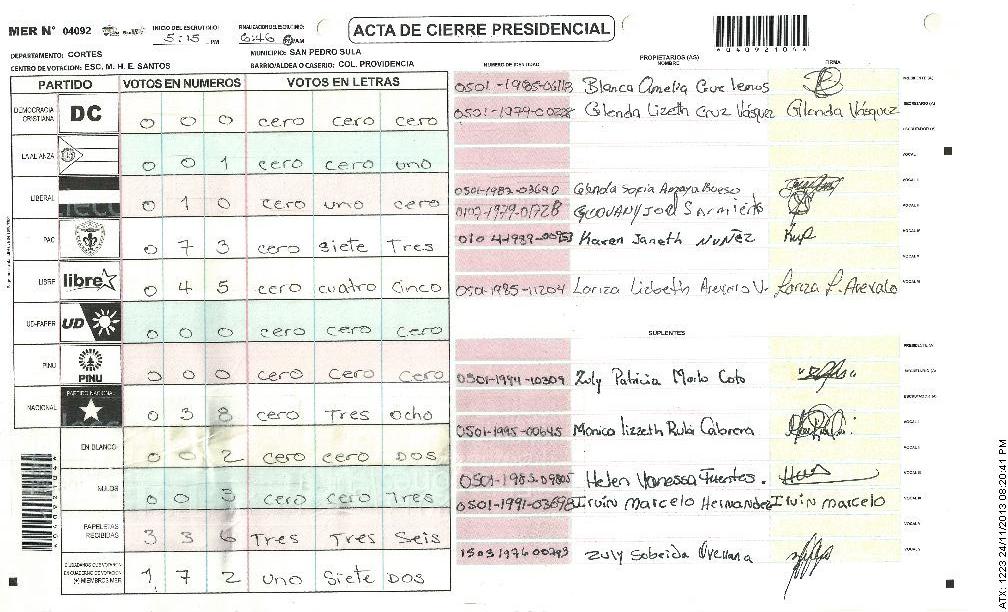 MER N° 04092
INICIO DEL ESCRUTINIO: 5:15 PM
FINALIZACION DEL ESCRUTINIO: 6:46 PM
ACTA DE CIERRE PRESIDENCIAL
DEPARTAMENTO: CORTES
MUNICIPIO: SAN PEDRO SULA
CENTRO DE VOTACION: ESC. M. H. E. SANTOS
BARRIO/ALDEA O CASERIO: COL. PROVIDENCIA
PARTIDO VOTOS EN NUMEROS VOTOS EN LETRAS
DEMOCRACIA CRISTIANA DC 0 0 0 cero cero cero
LA ALIANZA 0 0 1 cero cero uno
LIBERAL 0 1 0 cero uno cero
PAC 0 7 3 cero siete Tres
LIBRE libre 0 4 5 cero cuatro cinco
UD-FAPER UD 0 0 0 cero cero cero
PINU PINU 0 0 0 cero cero cero
NACIONAL PARTIDO NACIONAL 0 3 8 cero Tres ocho
EN BLANCO 0 0 2 cero cero DOS
NULOS 0 0 3 cero cero Tres
PAPELETAS RECIBIDAS 3 3 6 Tres Tres Seis
CIUDADANOS QUE VOTARON EN CUADERNO DE VOTACION (+) MIEMBROS MER 1 7 2 uno Siete DOS
NUMERO DE IDENTIDAD
PROPIETARIOS (AS)
NOMBRE
FIRMA
Blanca Amelia
PRESIDENTE (A)
Glenda Lizeth Cruz Vásquez Glenda Vásquez
SECRETARIO (A)
ESCRUTADOR (A)
VOCAL I
0501-1982-03690 Glenda Sofia Amaya Bueso
VOCAL II
0107-1979-01728 GEOVANY JOEL Sarmiento
VOCAL III
Karen Janeth NUÑEZ
VOCAL IV
0501-1985-11204 Loriza Lizbeth Arevalo V. Loriza L. Arevalo
SUPLENTES
PRESIDENTE (A)
0501-1994-10309 Zuly Patricia
SECRETARIO (A)
ESCRUTADOR (A)
0501-1995-00645 Monica lizzeth
VOCAL I
0501-1983-09805 Helen Vanessa Fuentes.
0501-1991-03678 Irvin Marcelo Hernandez Irvin marcelo
Zuly Sobeida Orellana
A04092106A
ATX: 1223 24/11/2013 08:20:41 PM